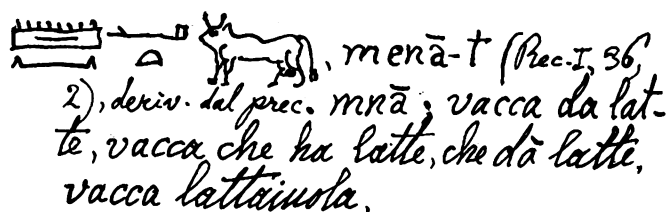 𓏠𓈖𓂝𓏏𓃒, menā-t (Rec. I, 96,
2), deriv. dal prec. mnā; vacca da lat-
te, vacca che ha latte, che dà latte,
vacca lattaiuola.